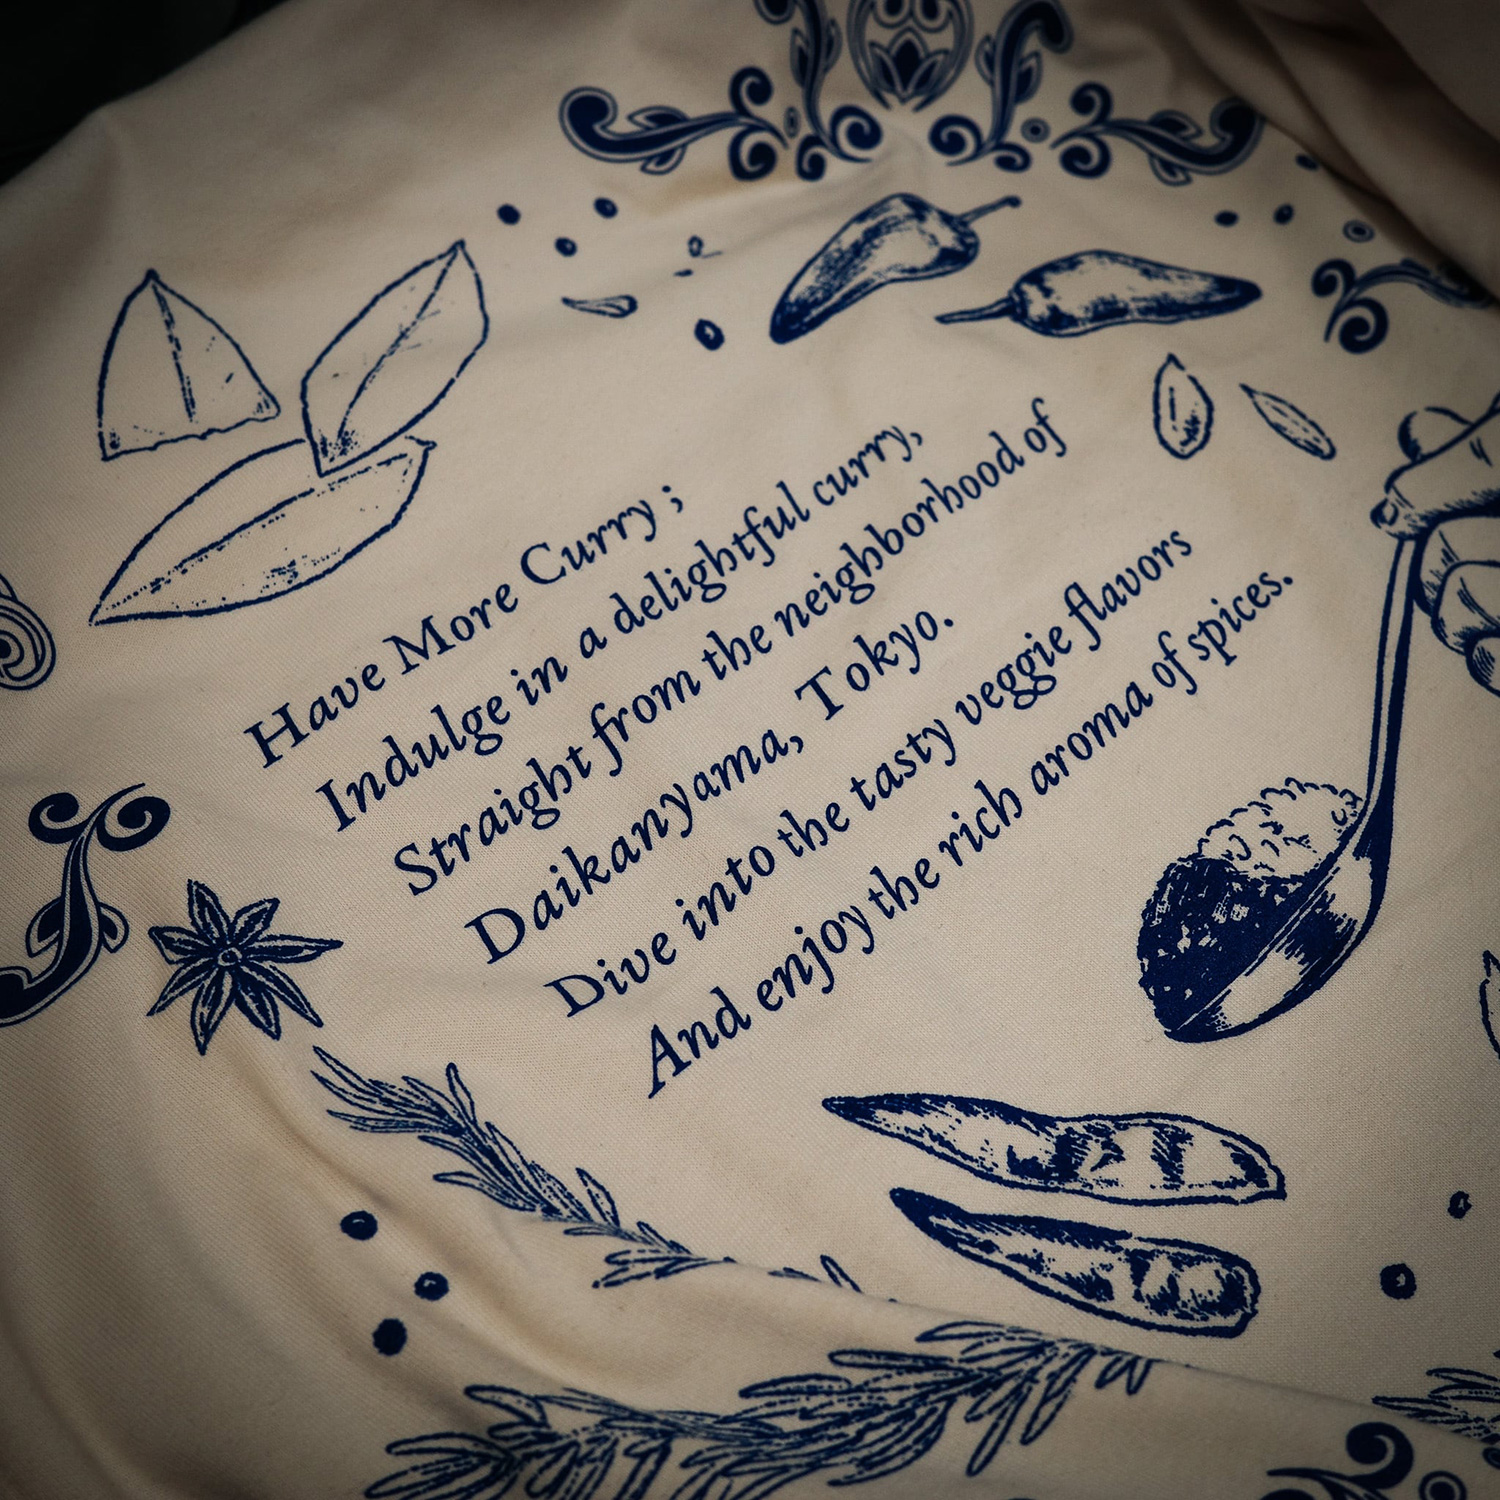 Have More Curry ;
Indulge in a delightful curry,
Straight from the neighborhood of
Daikanyama, Tokyo.
Dive into the tasty veggie flavors
And enjoy the rich aroma of spices.